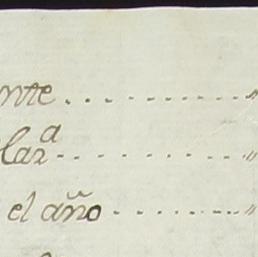 nte . . . . . . . . . . "
laz^a . . . . . . . . . . "
el año . . . . . . . . . "